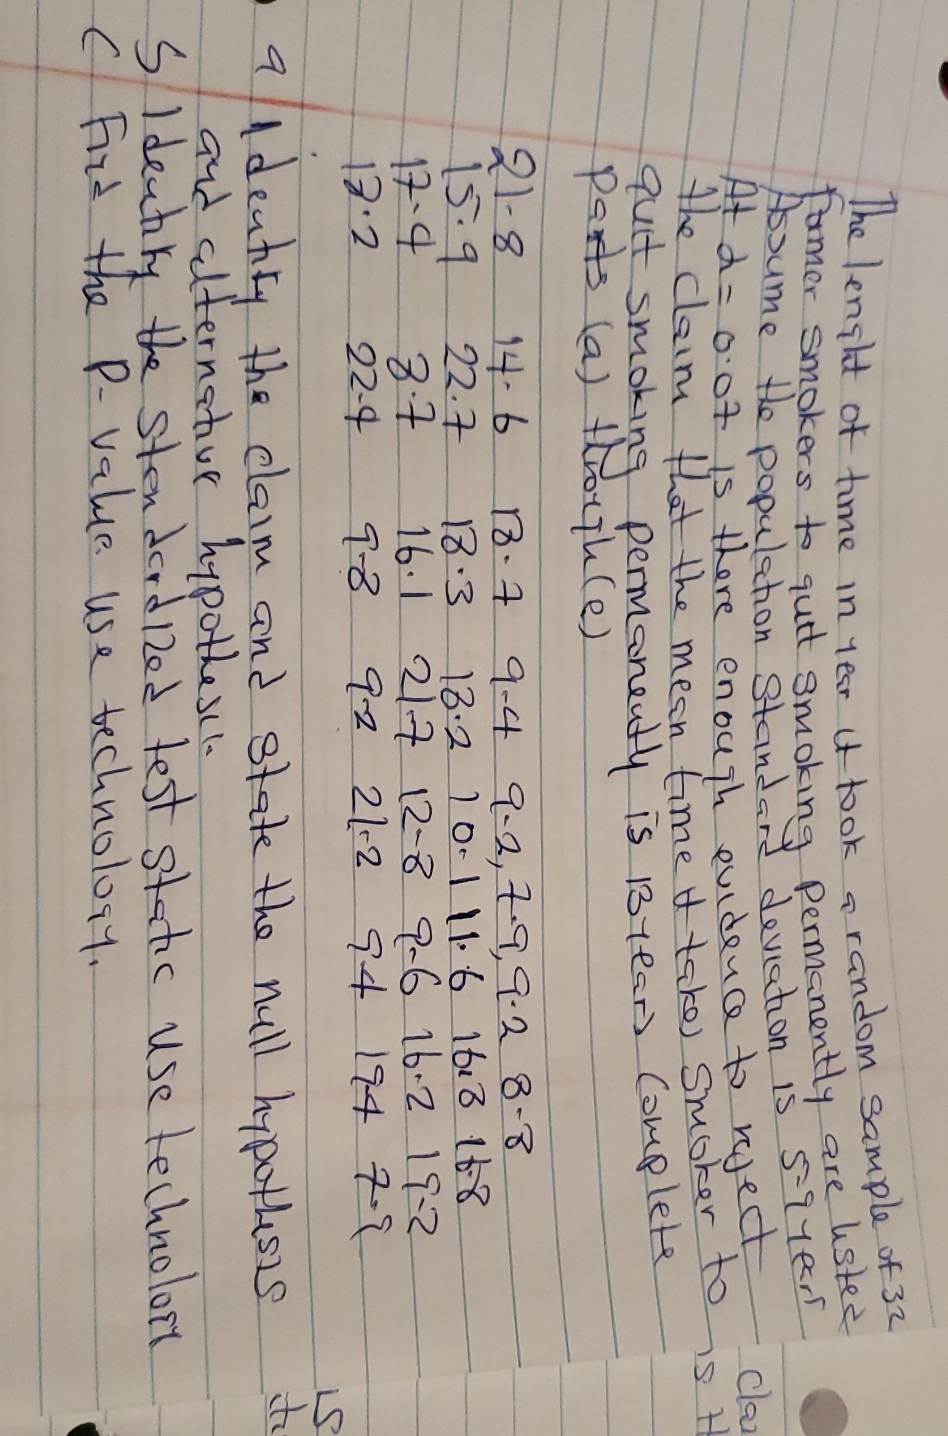 The lenght of time in year it took a random sample of 32
former smokers to quit smoking permanently are listed
Assume the population standard deviation is 5.9 years
At α = 0.07 is there enough evidence to reject
the claim that the mean time it takes smoker to
quit smoking permanently is 13 years Complete
parts (a) through (e)
21.8 14.6 13.7 9.4 9.2, 7.9, 9.2 8.8
15.9 22.7 13.3 13.2 10.1 11.6 16.8
17.4 8.7 16.1 21.7 12.8 9.6 16.2 19.2
17.2 22.4 9.8 9.2 21.2 9.4 19.4
a Identity the claim and state the null hypothesis
and alternative hypothesis.
b Identity the standardized test static use technology
C Find the P-value. use technology.
cla
is th
is